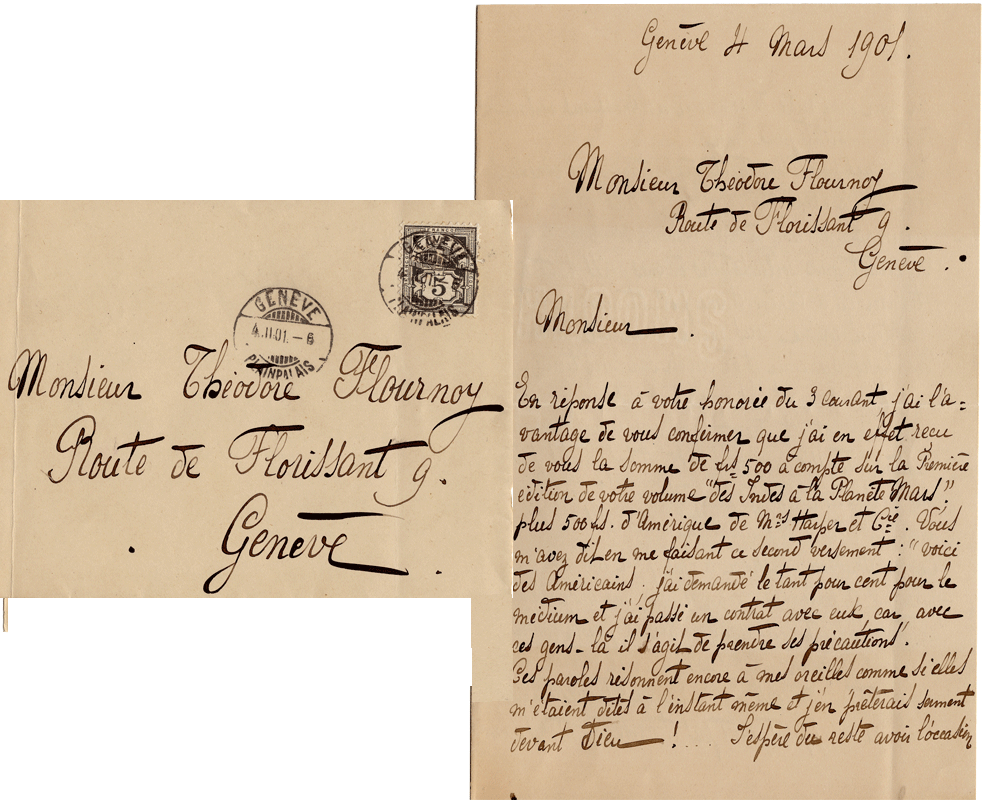 GENÈVE
4.II.01.–6
PLAINPALAIS
FRANCO
5
GENÈVE
PLAINPALAIS
Monsieur Théodore Flournoy
Route de Florissant 9.
Genève.
Genève 4 Mars 1901.
Monsieur Théodore Flournoy
Route de Florissant 9.
Genève.
Monsieur.
En réponse à votre honorée du 3 courant j'ai l'a=
vantage de vous confirmer que j'ai en effet reçu
de vous la somme de frs 500 à compte sur la Première
édition de votre volume "des Indes à la Planète Mars",
plus 500 frs. d'Amérique de Mrs Harper et Cie. Vous
m'avez dit en me faisant ce second versement : "voici
des Américains. j'ai demandé le tant pour cent pour le
médium et j'ai passé un contrat avec eux, car avec
ces gens-là il s'agit de prendre ses précautions".
Ces paroles résonnent encore à mes oreilles comme si elles
m'étaient dites à l'instant même et j'en prêterais serment
devant Dieu ! .... J'espère du reste avoir l'occasion